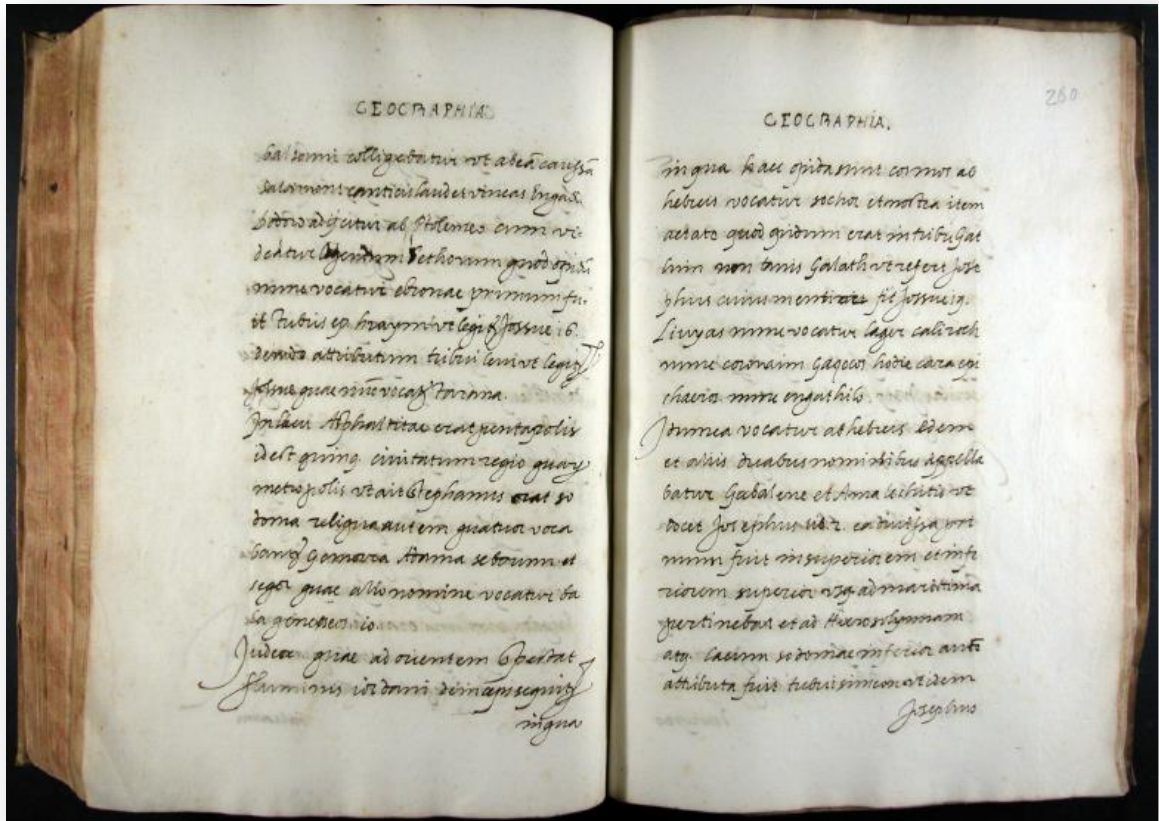 GEOGRAPHIA
balsamu colligebatur vt ab eā caussā
salomon canticis laudet vineas Engad.
adijcitur ab Ptolemeo cum vi-
deatur legendum Bethorum quod opidū
nunc vocatur ebronae primum fu-
it Tubus ephraymi vt legit Jossue 16.
deinde attributum tribui leui vt legit
Josue quae nūc vocat Torana.
In lacu Asphaltitae erat pentapolis
idest quinq civitatum regio quarū
metropolis vt ait Stephanus erat so
doma reliqua autem quatuor voca
bant Gomorra Adama seboum et
segor quae alio nomine vocatur ba
la geneseos .io.
Judeae quae ad orientem spectat
fluminis iordani deinceps sequit
in qua
260
GEOGRAPHIA.
in qua haec opida sunt cosmos ab
hebreis vocatur sochot et nostra item
aetate quod opidum erat in tribu Gat
non tanis Galath vt refert Jose
phus cuius mentio fit Jossue 19.
Livyas nunc vocatur lager caliroch
nunc coronaim Gazocos hodie cara epi
chaeros nunc engathils
Idumea vocatur ab hebreis Edem
et aliis duabus nominibus appella
batur Gabalene et Amalechitis vt
docet Josephus lib 2. ea diuissa pri
mum fuit in superiorem et infe
riorem superior vsq ad maritima
pertinebat et ad Hierosolymam
atq lacum sodomae inferior autē
attributa fuit tribui simeon vt idem
Josephus